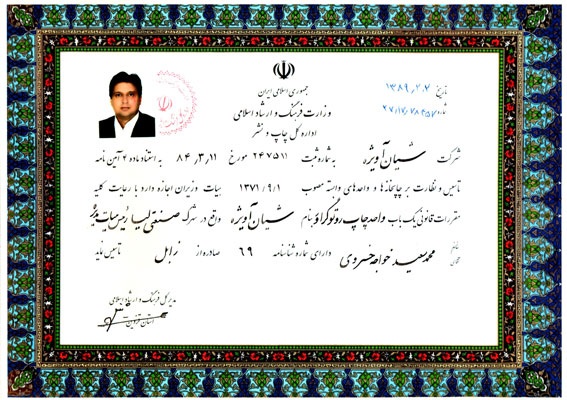 جمهوری اسلامی ایران
وزارت فرهنگ و ارشاد اسلامی
اداره کل چاپ و نشر
تاریخ ۱۳۸۹,۲,۷
شماره
شرکت شیان آویژه به شماره ثبت ۲۴۷۵۱۱ مورخ ۸۴,۳,۱۱ به استناد ماده ۴ آیین نامه
تاسیس و نظارت بر چاپخانه ها و واحدهای وابسته مصوب ۱۳۷۱/۹/۱ هیات وزیران اجازه دارد با رعایت کلیه
مقررات قانونی یک باب واحد چاپ روتوگراور بنام شیان آویژه واقع در شهرک صنعتی لیا
محمد سعید خواجه خسروی دارای شماره شناسنامه ۶۹ صادره از زابل تاسیس نماید
مدیر کل فرهنگ و ارشاد اسلامی
استان قزوین